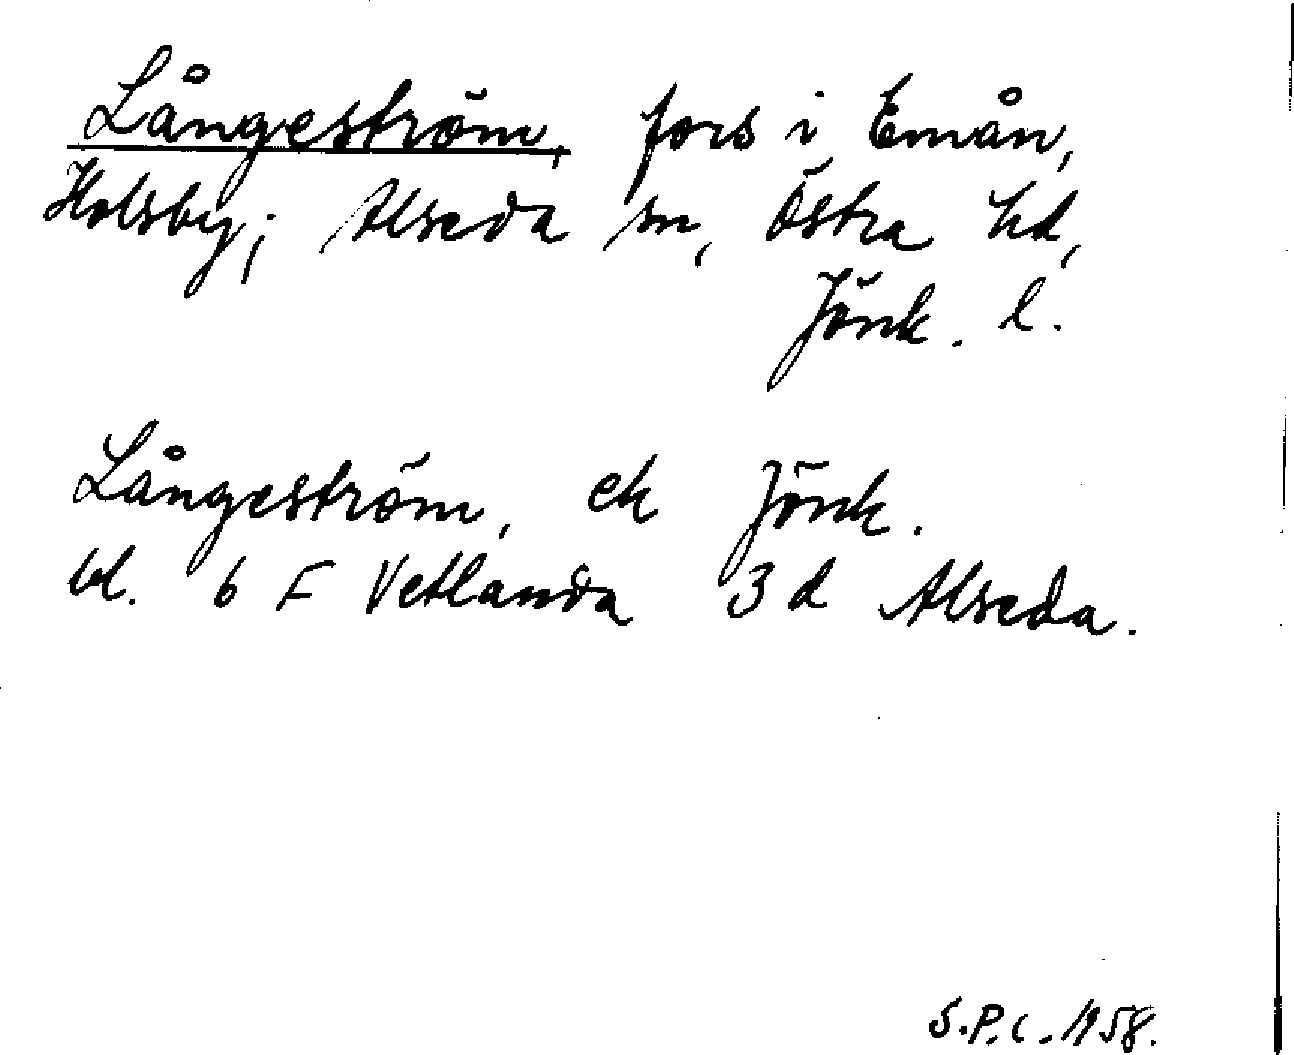 Långeström, fors i Emån,
Holsby; Alseda sn, Östra hd,
Jönk. l.
Långeström, ek Jönk.
bl. 6 F Vetlanda 3 d Alseda.
S.P.C. 1958.